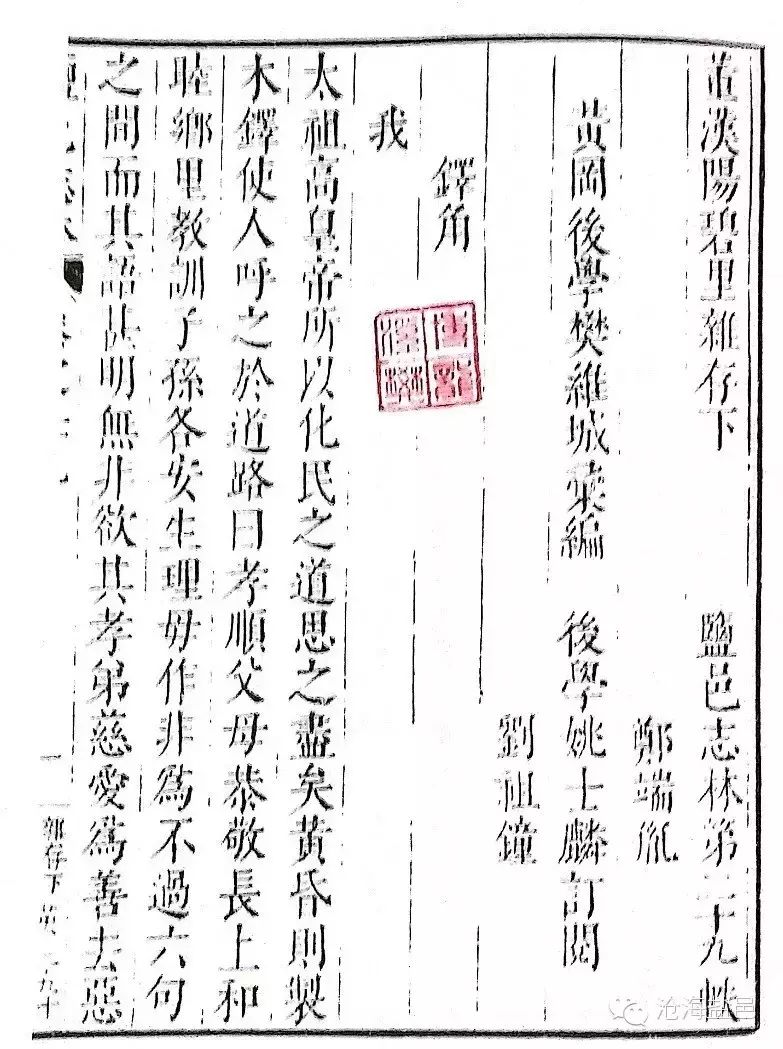 董漢陽碧里雜存下 鹽邑志林第二十九帙
鄭端胤
黃岡後學樊維城彙編 後學姚士麟訂閱
劉祖鐘
鐸角
我
太祖高皇帝所以化民之道思之盡矣黃昏則製
木鐸使人呼之於道路曰孝順父母恭敬長上和
睦鄉里教訓子孫各安生理毋作非為不過六句
之間而其語甚明無非欲其孝弟慈愛為善去惡
一
雜存下
沧海盐邑